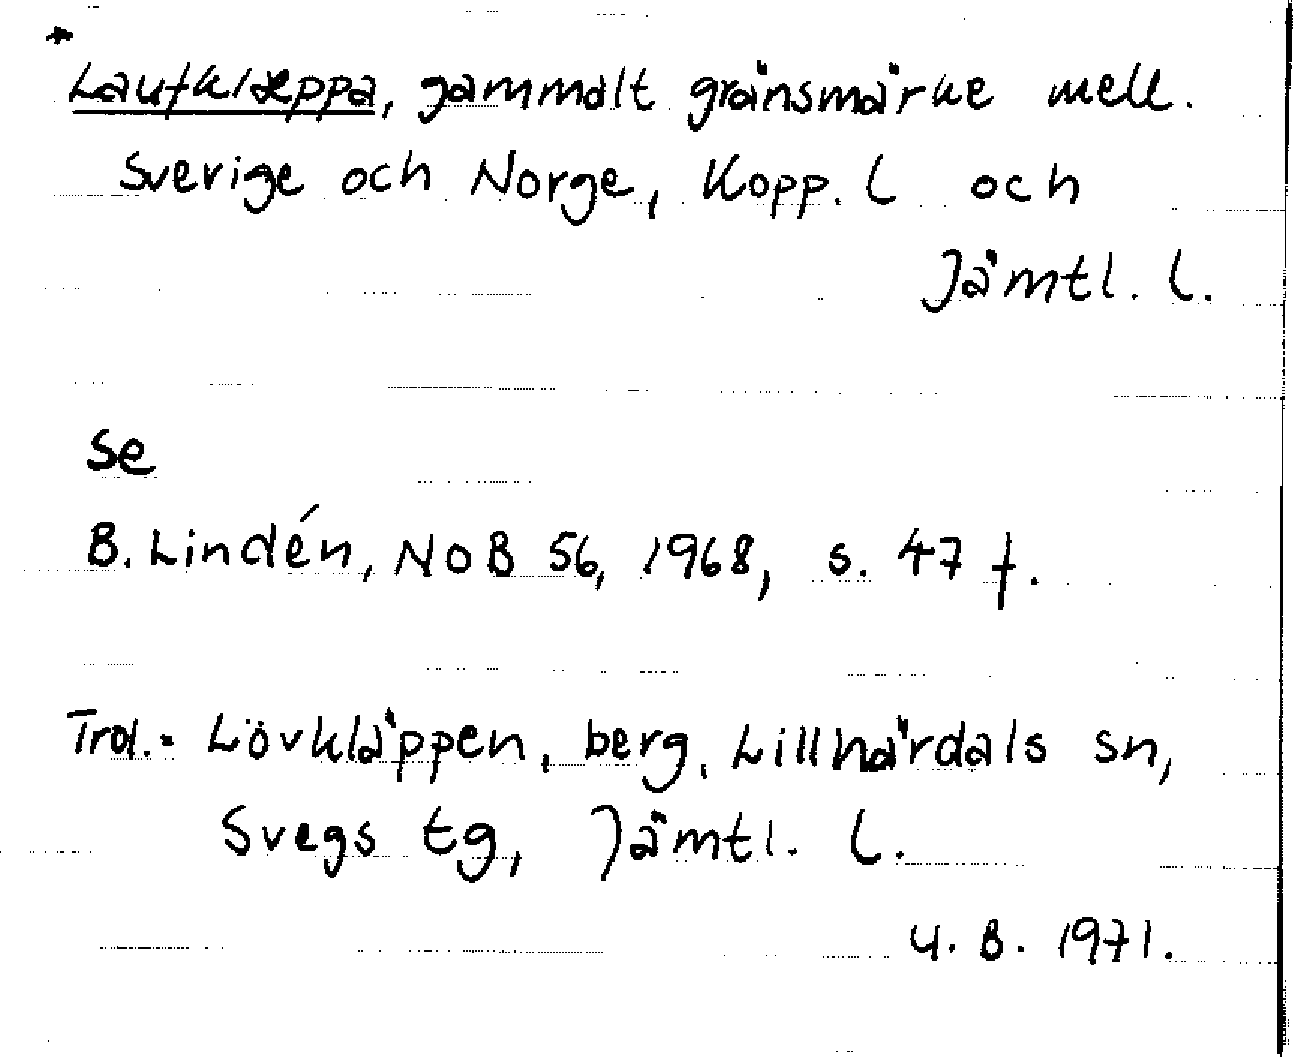 Laufklæppa, gammalt gränsmärke mell.
Sverige och Norge, Kopp. l och
Jämtl. l.
se
B. Lindén, NoB 56, 1968, s. 47 f.
Trol. = Lövkläppen, berg, Lillhärdals sn,
Svegs tg, Jämtl. l.
U. B. 1971.